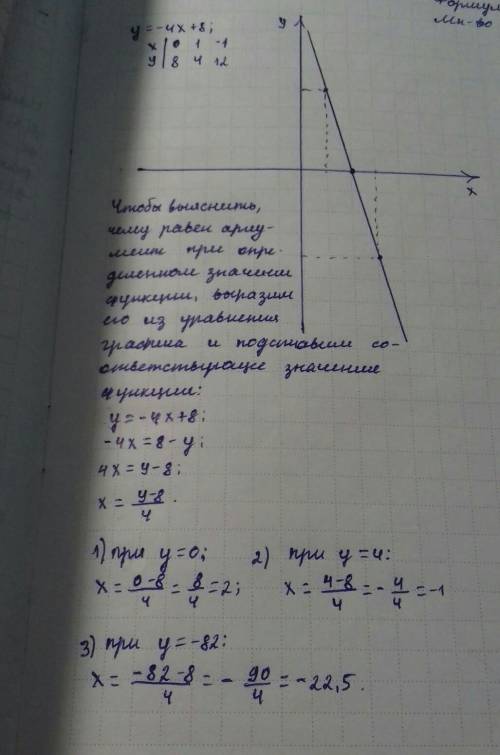 формул
Мн-во
y = -4x+8;
x | 0 1 -1
y | 8 4 12
y
x
Чтобы выяснить,
чему равен аргу-
мент при опре-
деленном значении
функции, выразим
его из уравнения
графика и подставим со-
ответствующее значение
функции:
y = -4x+8;
-4x = 8-y;
4x = y-8;
x = \frac{y-8}{4}.
1) при y=0; 2) при y=4:
x = \frac{0-8}{4} = \frac{8}{4} = 2; x = \frac{4-8}{4} = -\frac{4}{4} = -1
3) при y=-82:
x = \frac{-82-8}{4} = -\frac{90}{4} = -22,5.